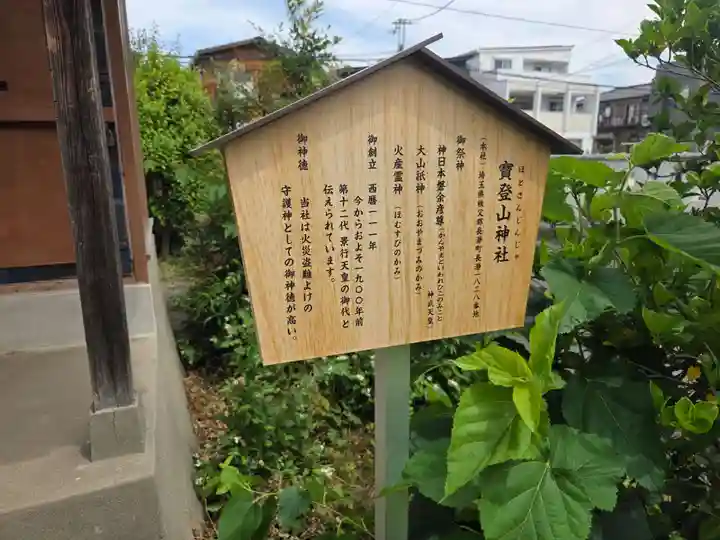 ほどさんじんじゃ
寶登山神社
(本社) 埼玉県秩父郡長瀞町長瀞一八二八番地
御祭神
神日本磐余彦尊(かんやまといわれひこのみこと 神武天皇)
大山祇神(おおやまづみのかみ)
火産霊神(ほむすびのかみ)
御創立 西暦一一一年
今からおよそ一九〇〇年前
第十二代 景行天皇の御代と
伝えられています。
御神徳 当社は火災盗難よけの
守護神としての御神徳が高い。